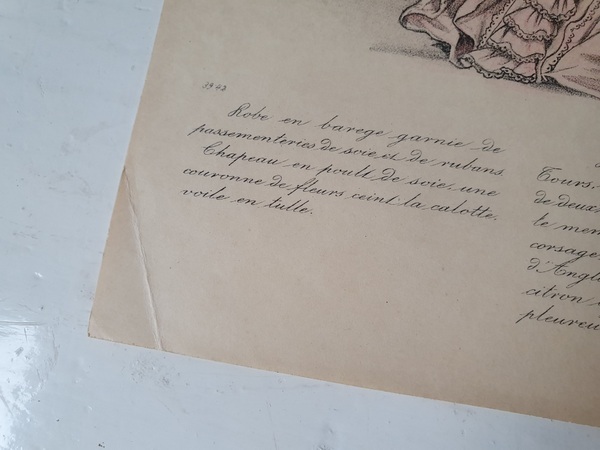 Robe en barege garnie de
passementeries de soie et de rubans
Chapeau en poult de soie, une
couronne de fleurs ceint la calotte,
voile en tulle.
Tours,
de deux
te
corsage
d'Angle
citron
pleureu